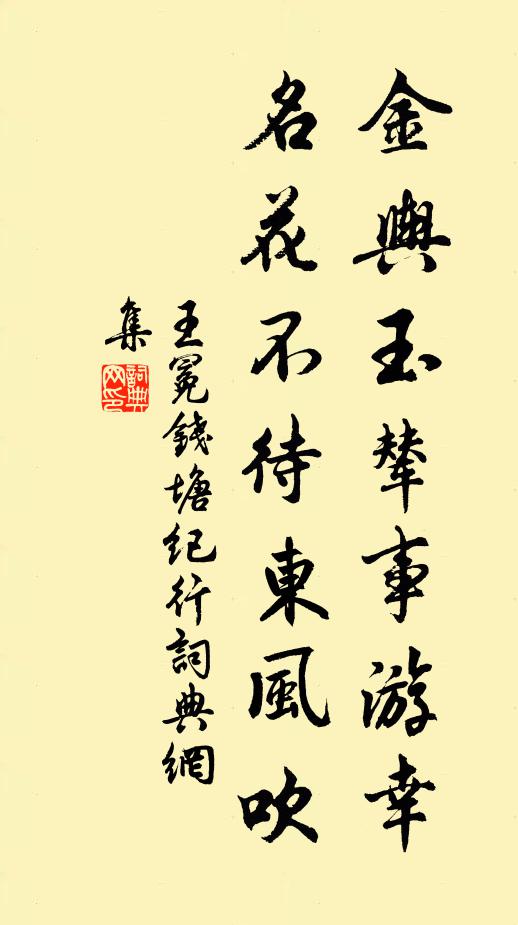 金輿玉輦事游幸
名花不待東風吹
王冕錢塘紀行詞典網
集
詞典
网印